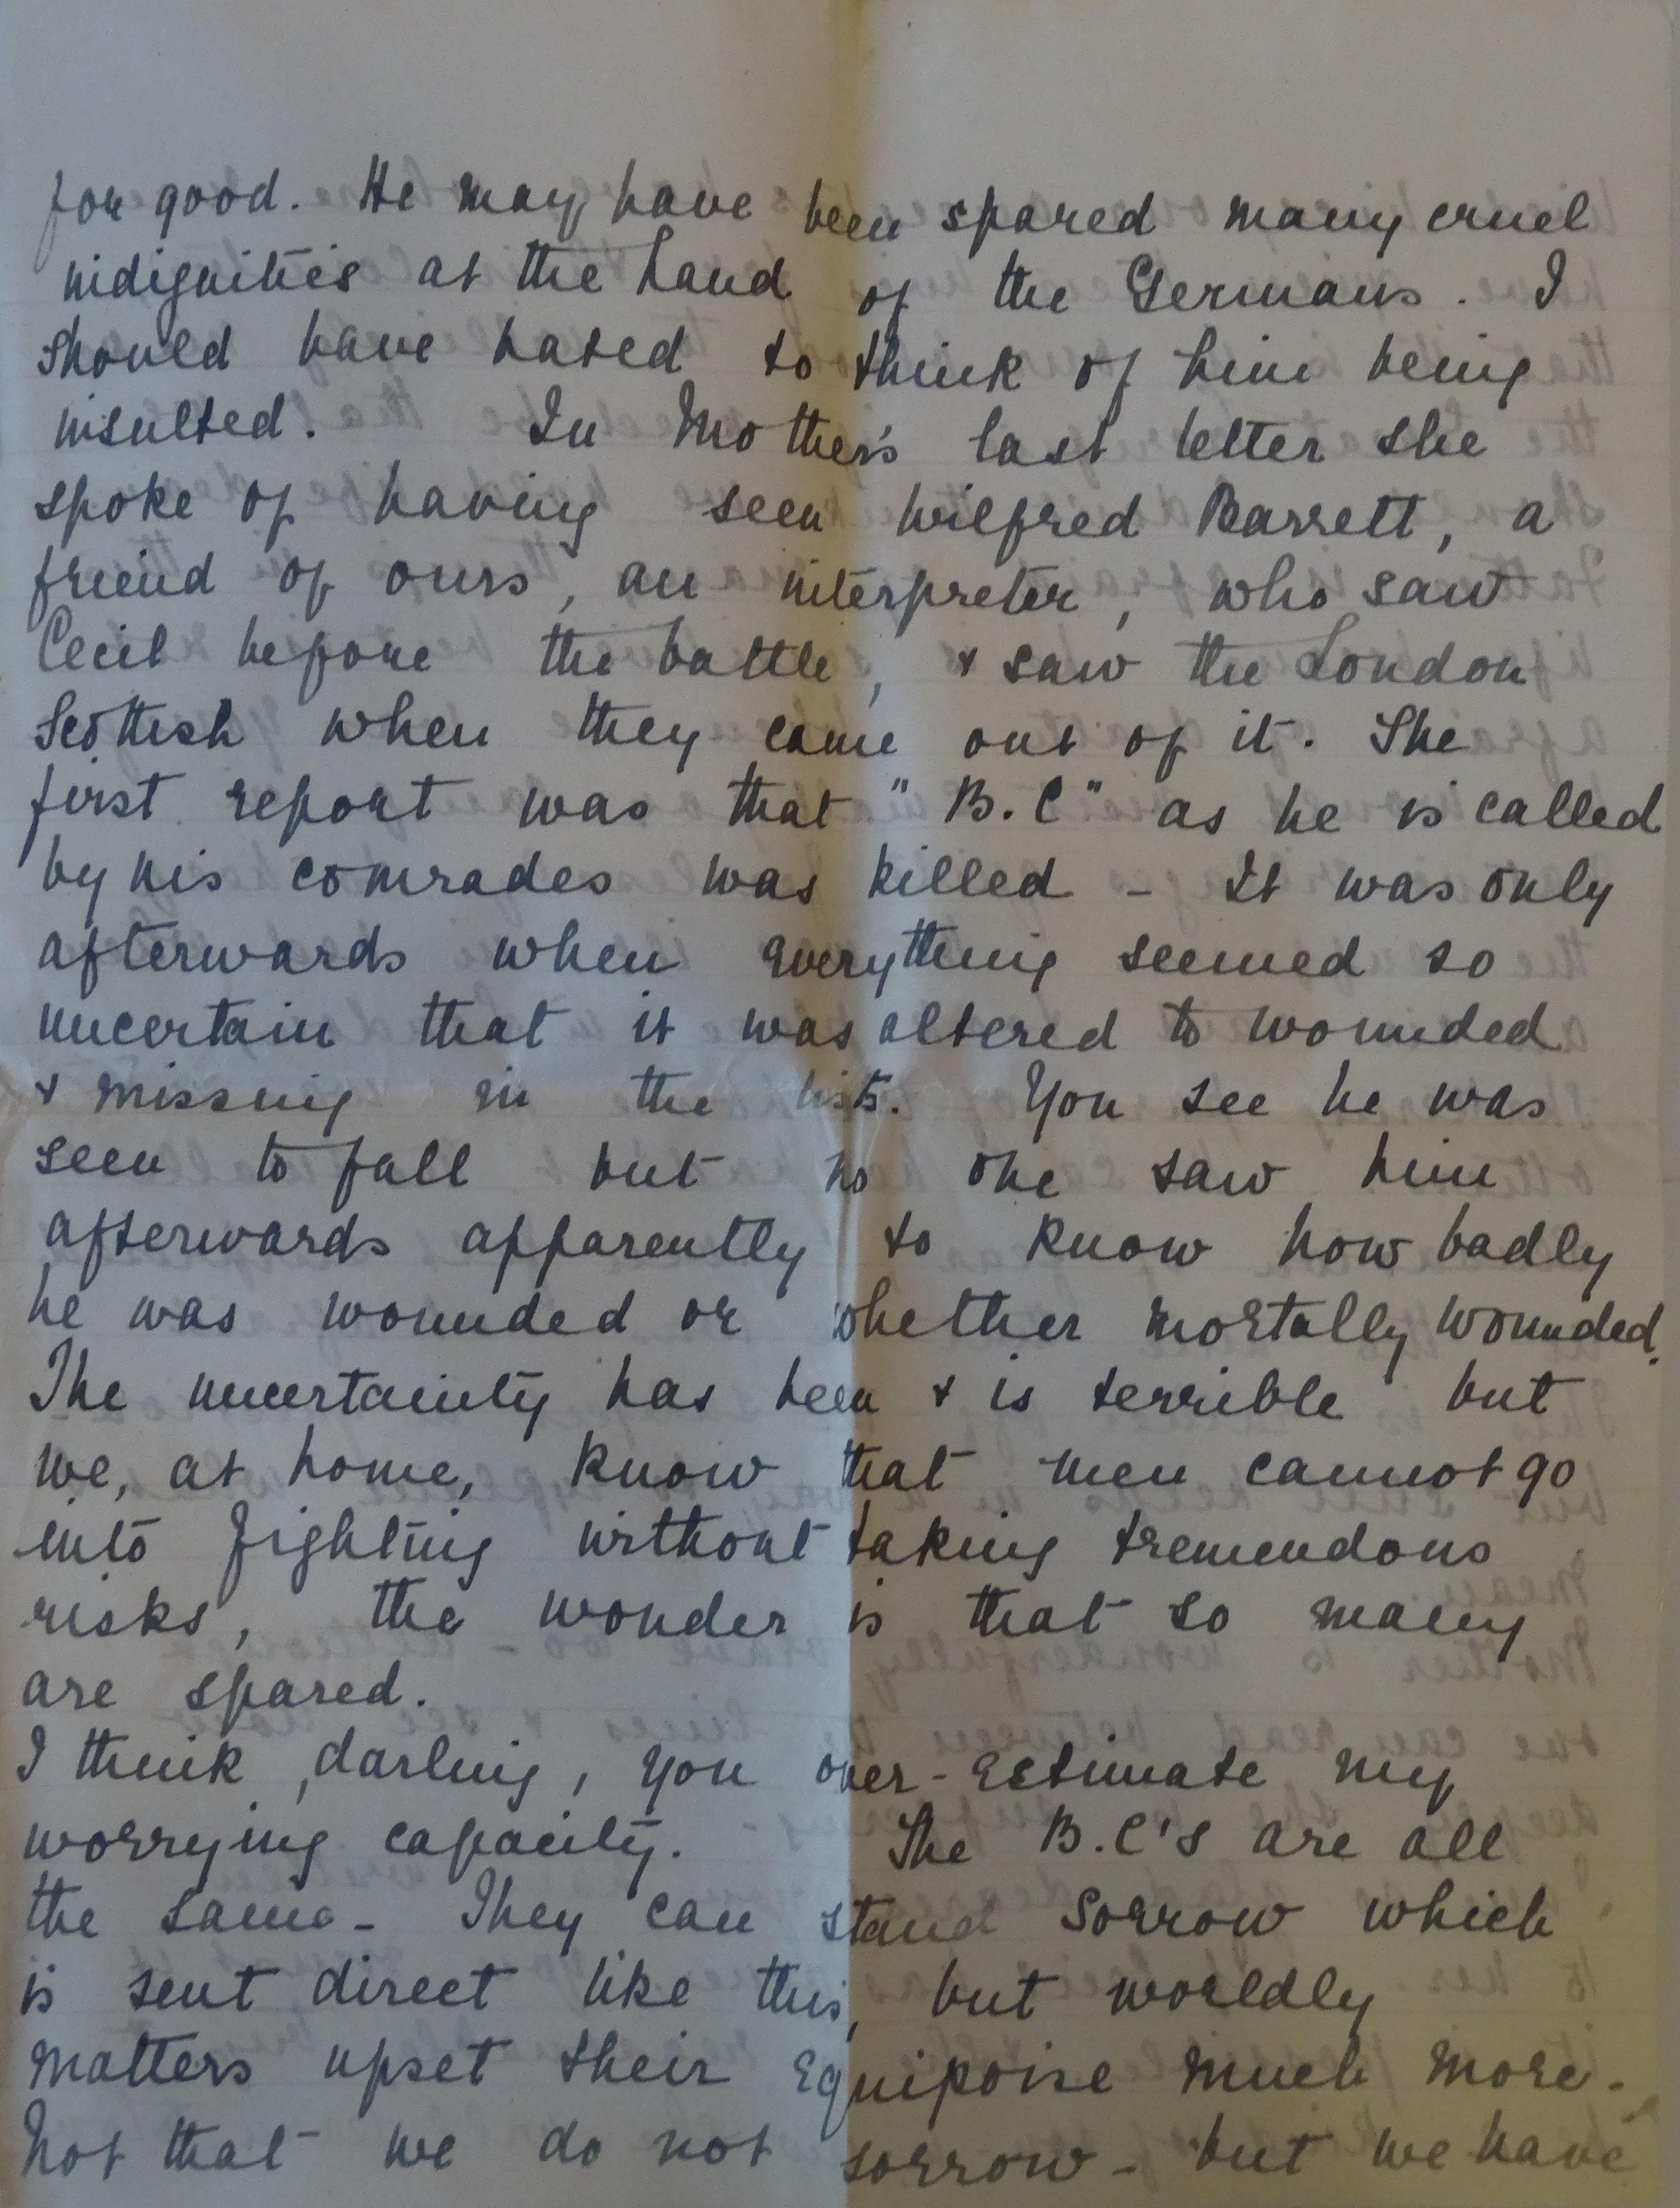 for good. He may have been spared many cruel
indignities at the hand of the Germans. I
should have hated to think of him being
insulted. In Mother's last letter she
spoke of having seen Wilfred Barrett, a
friend of ours, an interpreter, who saw
Cecil before the battle, & saw the London
Scottish when they came out of it. The
first report was that "B.C" as he is called
by his comrades was killed - It was only
afterwards when everything seemed so
uncertain that it was altered to wounded
& missing in the lists. You see he was
seen to fall but no one saw him
afterwards apparently to know how badly
he was wounded or whether mortally wounded.
The uncertainty has been & is terrible but
we, at home, know that men cannot go
into fighting without taking tremendous
risks, the wonder is that so many
are spared.
I think, darling, you over-estimate my
worrying capacity. The B.C's are all
the same - They can stand sorrow which
is sent direct like this, but worldly
matters upset their equipoise much more.
Not that we do not sorrow - but we have